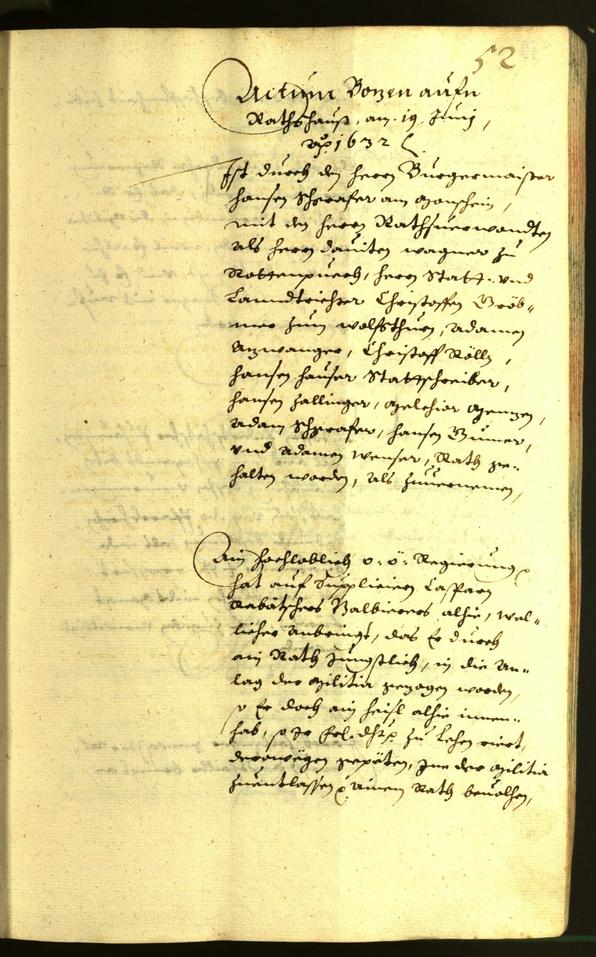 52
Actum Bozen aufn
Rathshauß, am 19 Junij,
ao 1632
Ist durch den herrn Burgermaister
hansen Schrafer am Monschein,
mit den herrn Rathsverwandten
als herrn dauiten wagner zu
Rottenpuech, herrn Statt- vnd
Lanndtrichter Christoffen Gröb-
mer zum wolfsthurn, Adamen
Anzwanger, Christoff Röllz,
hansen hauser Stattschreiber,
hansen hallinger, Melchior
Adam Schrafer, hansen
vnd Adamen wenser, Rath ge-
halten worden, als zuuernemen,
Ain hochloblich o: ö: Regierung
hat auf Supplicieren Casparn
Balbierers alhie, wel-
licher anbringt, das Er durch
ain Rath Jungstlich, in die An-
lag der Militia gezogen worden,
so Er doch ain heisl alhie innen-
hab, so Ir Frl: dht: zu Lehen riert,
derowegen gepeten, Jne der Militia
zuentlassen, ainem Rath beuolhen,